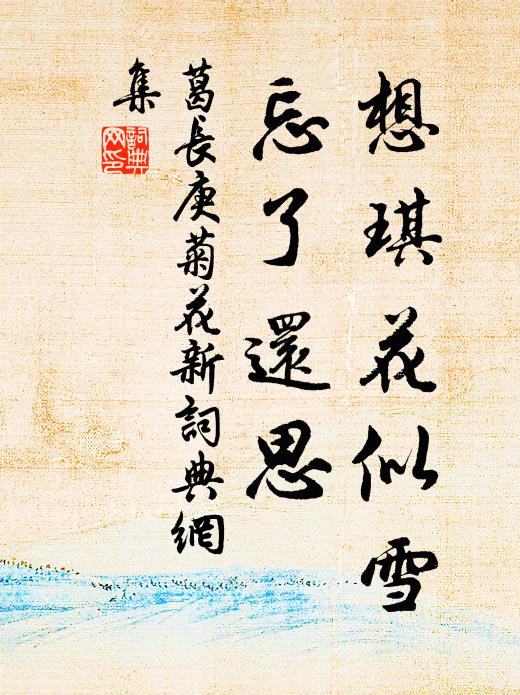 想琪花似雪
忘了還思
葛長庚菊花新詞典網
集
詞典
网印